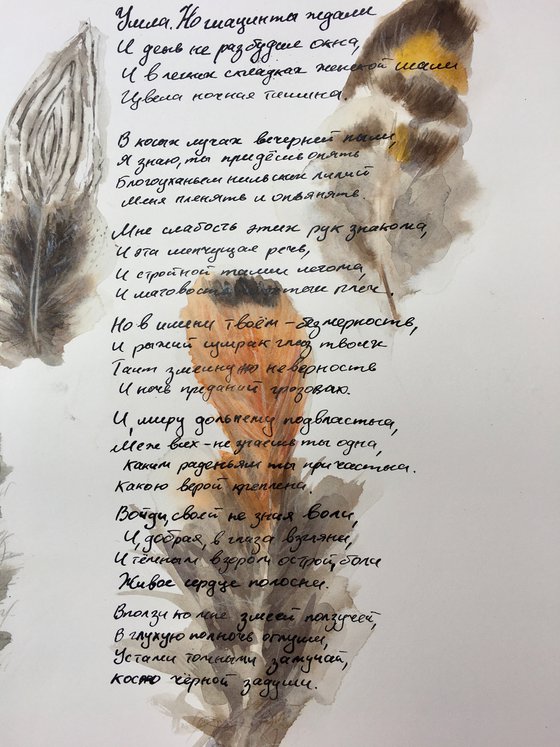 Ушла. Но гиацинты ждали
И день не разбудил окна,
И в легких складках женской шали
Цвела ночная тишина.
В косых лучах вечерней пыли,
Я знаю, ты придёшь опять
Благоуханьем нильских лилий
Меня пленять и опьянять.
Мне слабость этих рук знакома,
И эта шепчущая речь,
И стройной талии истома,
И матовость покатых плеч.
Но в имени твоём - безмерность,
И рыжий сумрак глаз твоих
Таит змеиную неверность
И ночь преданий грозовых.
И, миру дольнему подвластна,
Меж всех - не знаешь ты одна,
Каким раденьям ты причастна.
Какою верой крещена.
Войди, своей не зная воли,
И, добрая, в глаза взгляни,
И тёмным взором острой боли
Живое сердце полосни.
Вползи ко мне змеей ползучей,
В глухую полночь оглуши,
Устами томными замучай,
Косою чёрной задуши.